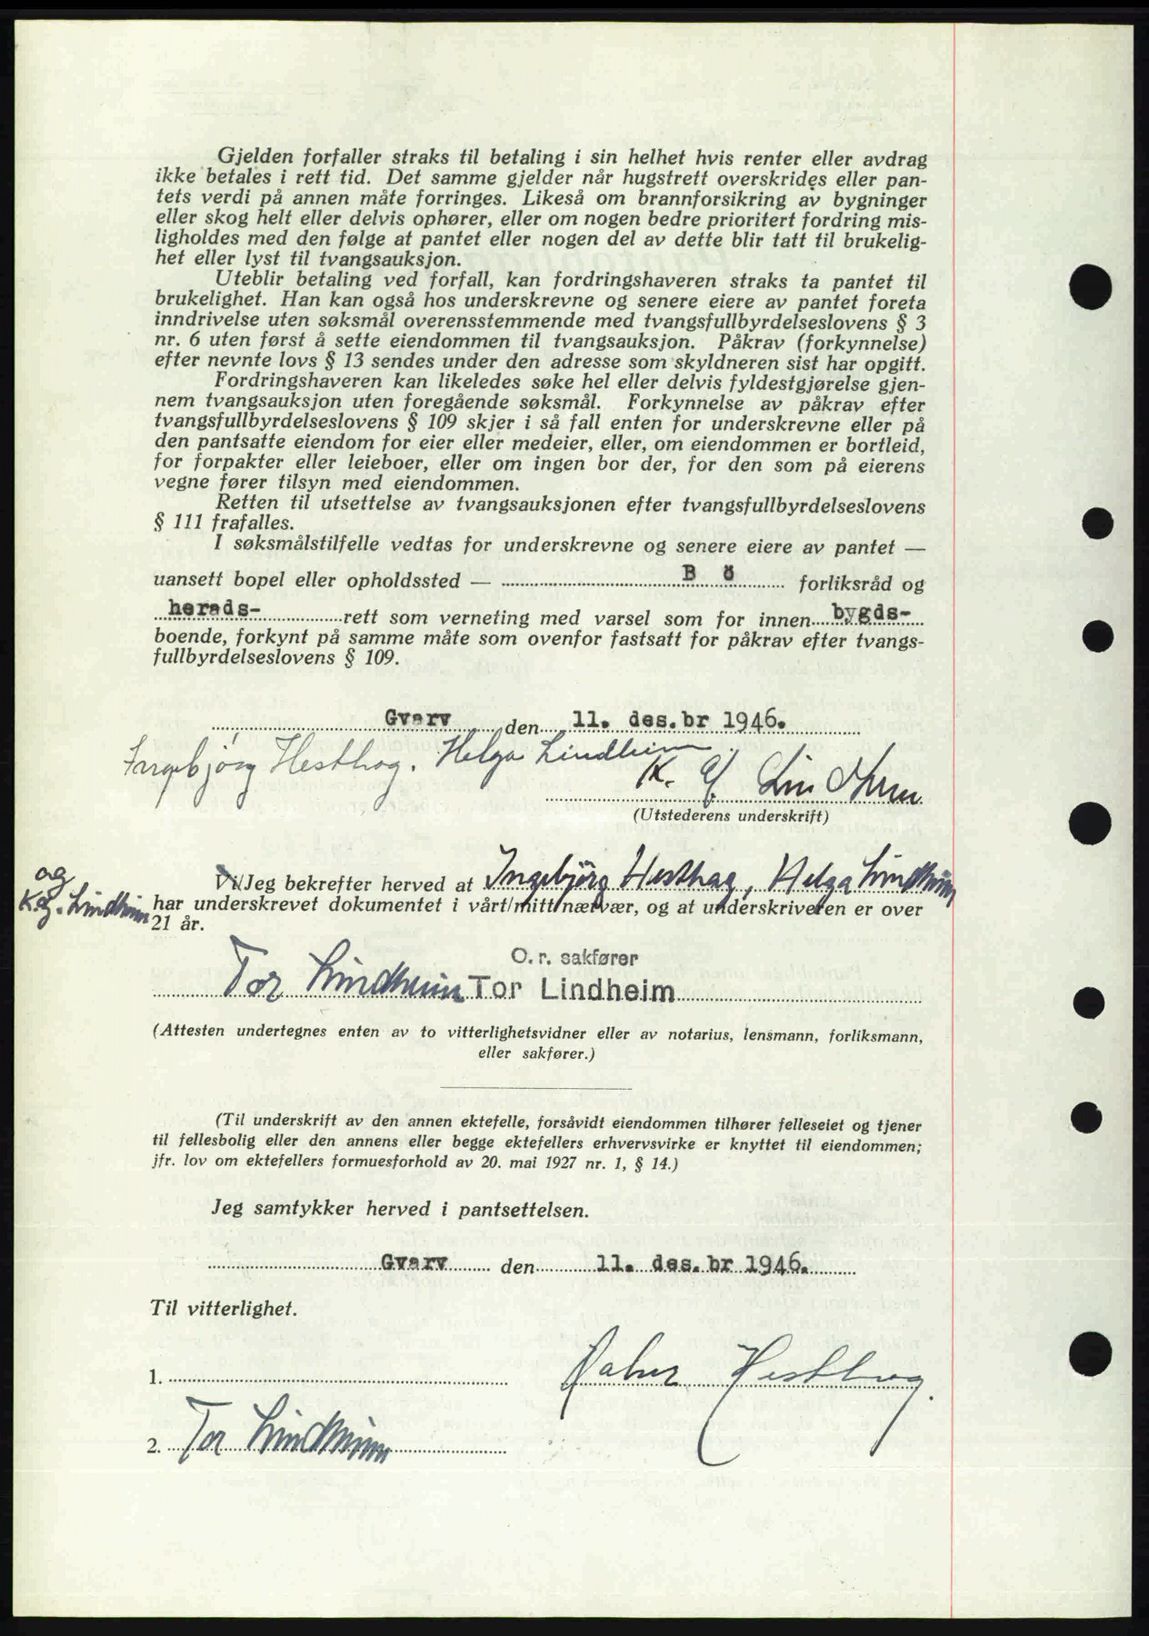 Gjelden forfaller straks til betaling i sin helhet hvis renter eller avdrag
ikke betales i rett tid. Det samme gjelder når hugstrett overskrides eller pan-
tets verdi på annen måte forringes. Likeså om brannforsikring av bygninger
eller skog helt eller delvis ophører, eller om nogen bedre prioritert fordring mis-
ligholdes med den følge at pantet eller nogen del av dette blir tatt til brukelig-
het eller lyst til tvangsauksjon.
Uteblir betaling ved forfall, kan fordringshaveren straks ta pantet til
brukelighet. Han kan også hos underskrevne og senere eiere av pantet foreta
inndrivelse uten søksmål overensstemmende med tvangsfullbyrdelseslovens § 3
nr. 6 uten først å sette eiendommen til tvangsauksjon. Påkrav (forkynnelse)
efter nevnte lovs § 13 sendes under den adresse som skyldneren sist har opgitt.
Fordringshaveren kan likeledes søke hel eller delvis fyldestgjørelse gjen-
nem tvangsauksjon uten foregående søksmål. Forkynnelse av påkrav efter
tvangsfullbyrdelseslovens § 109 skjer i så fall enten for underskrevne eller på
den pantsatte eiendom for eier eller medeier, eller, om eiendommen er bortleid,
for forpakter eller leieboer, eller om ingen bor der, for den som på eierens
vegne fører tilsyn med eiendommen.
Retten til utsettelse av tvangsauksjonen efter tvangsfullbyrdelseslovens
§ 111 frafalles.
I søksmålstilfelle vedtas for underskrevne og senere eiere av pantet —
uansett bopel eller opholdssted — B ö forliksråd og
herads- rett som verneting med varsel som for innen bygds-
boende, forkynt på samme måte som ovenfor fastsatt for påkrav efter tvangs-
fullbyrdelseslovens § 109.
Gvarv den 11. des.br 1946.
Ingebjörg Hesthag. Helga Lindheim
K. G. Lindheim
(Utstederens underskrift)
Vi/Jeg bekrefter herved at Ingebjörg Hesthag, Helga Lindheim
og
K.G. Lindheim
har underskrevet dokumentet i vårt/mitt nærvær, og at underskriveren er over
21 år.
O.r. sakfører
Tor Lindheim Tor Lindheim
(Attesten undertegnes enten av to vitterlighetsvidner eller av notarius, lensmann, forliksmann,
eller sakfører.)
(Til underskrift av den annen ektefelle, forsåvidt eiendommen tilhører felleseiet og tjener
til fellesbolig eller den annens eller begge ektefellers erhvervsvirke er knyttet til eiendommen;
jfr. lov om ektefellers formuesforhold av 20. mai 1927 nr. 1, § 14.)
Jeg samtykker herved i pantsettelsen.
Gvarv den 11. des.br 1946.
Til vitterlighet.
1.
Hesthag.
2. Tor Lindheim